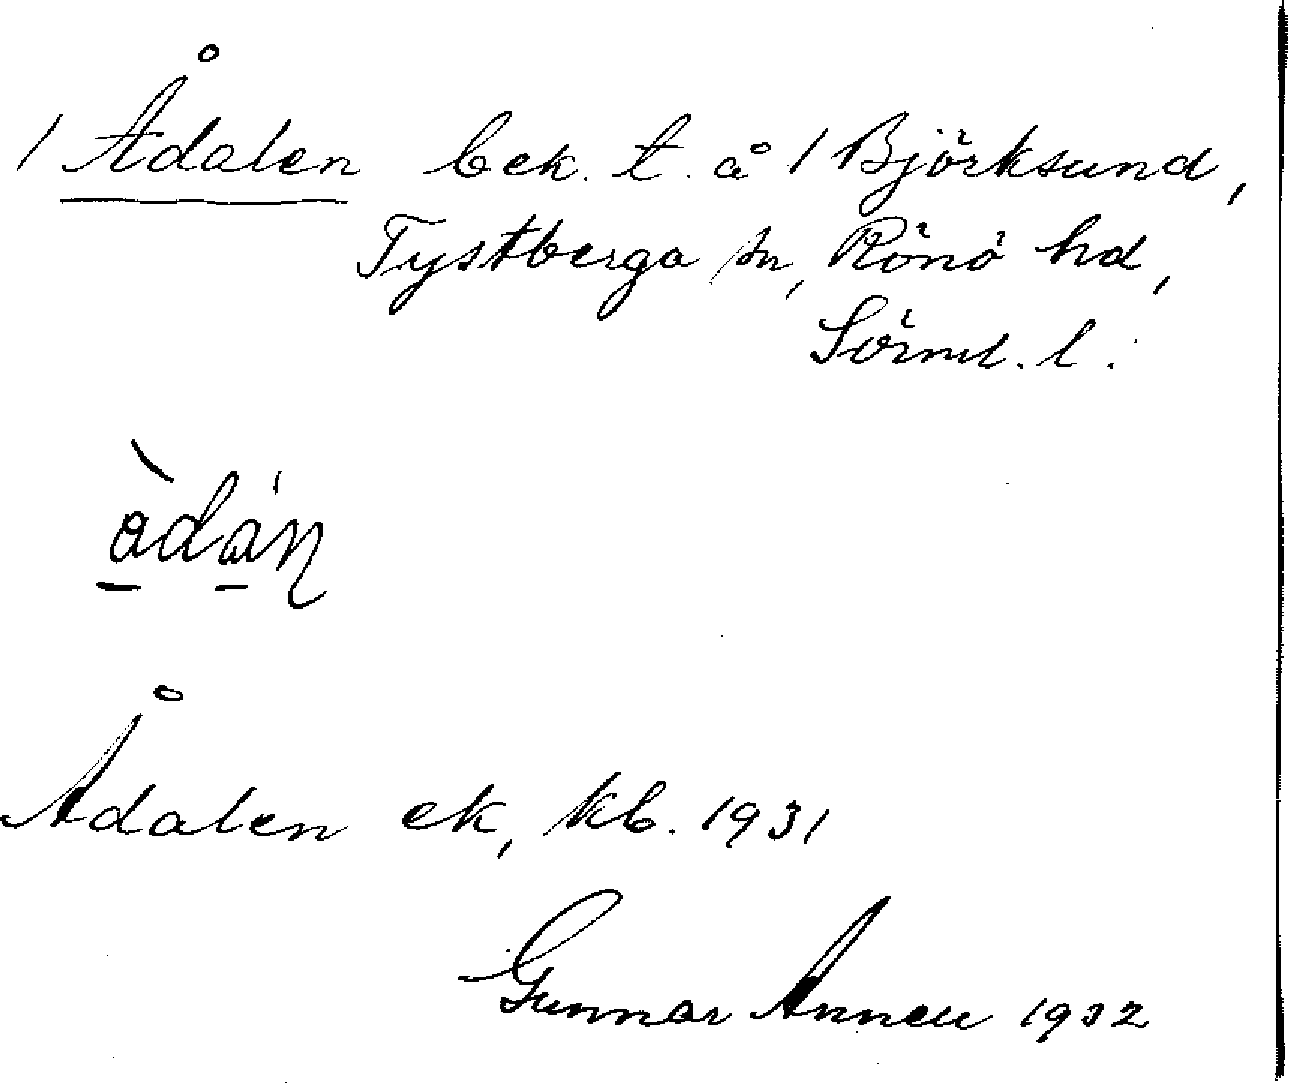 / Ådalen bek. t. å / Björksund,
Tystberga sn, Rönö hd,
Sörml. l.
Ådalen ek, kb. 1931
Gunnar Annell 1932